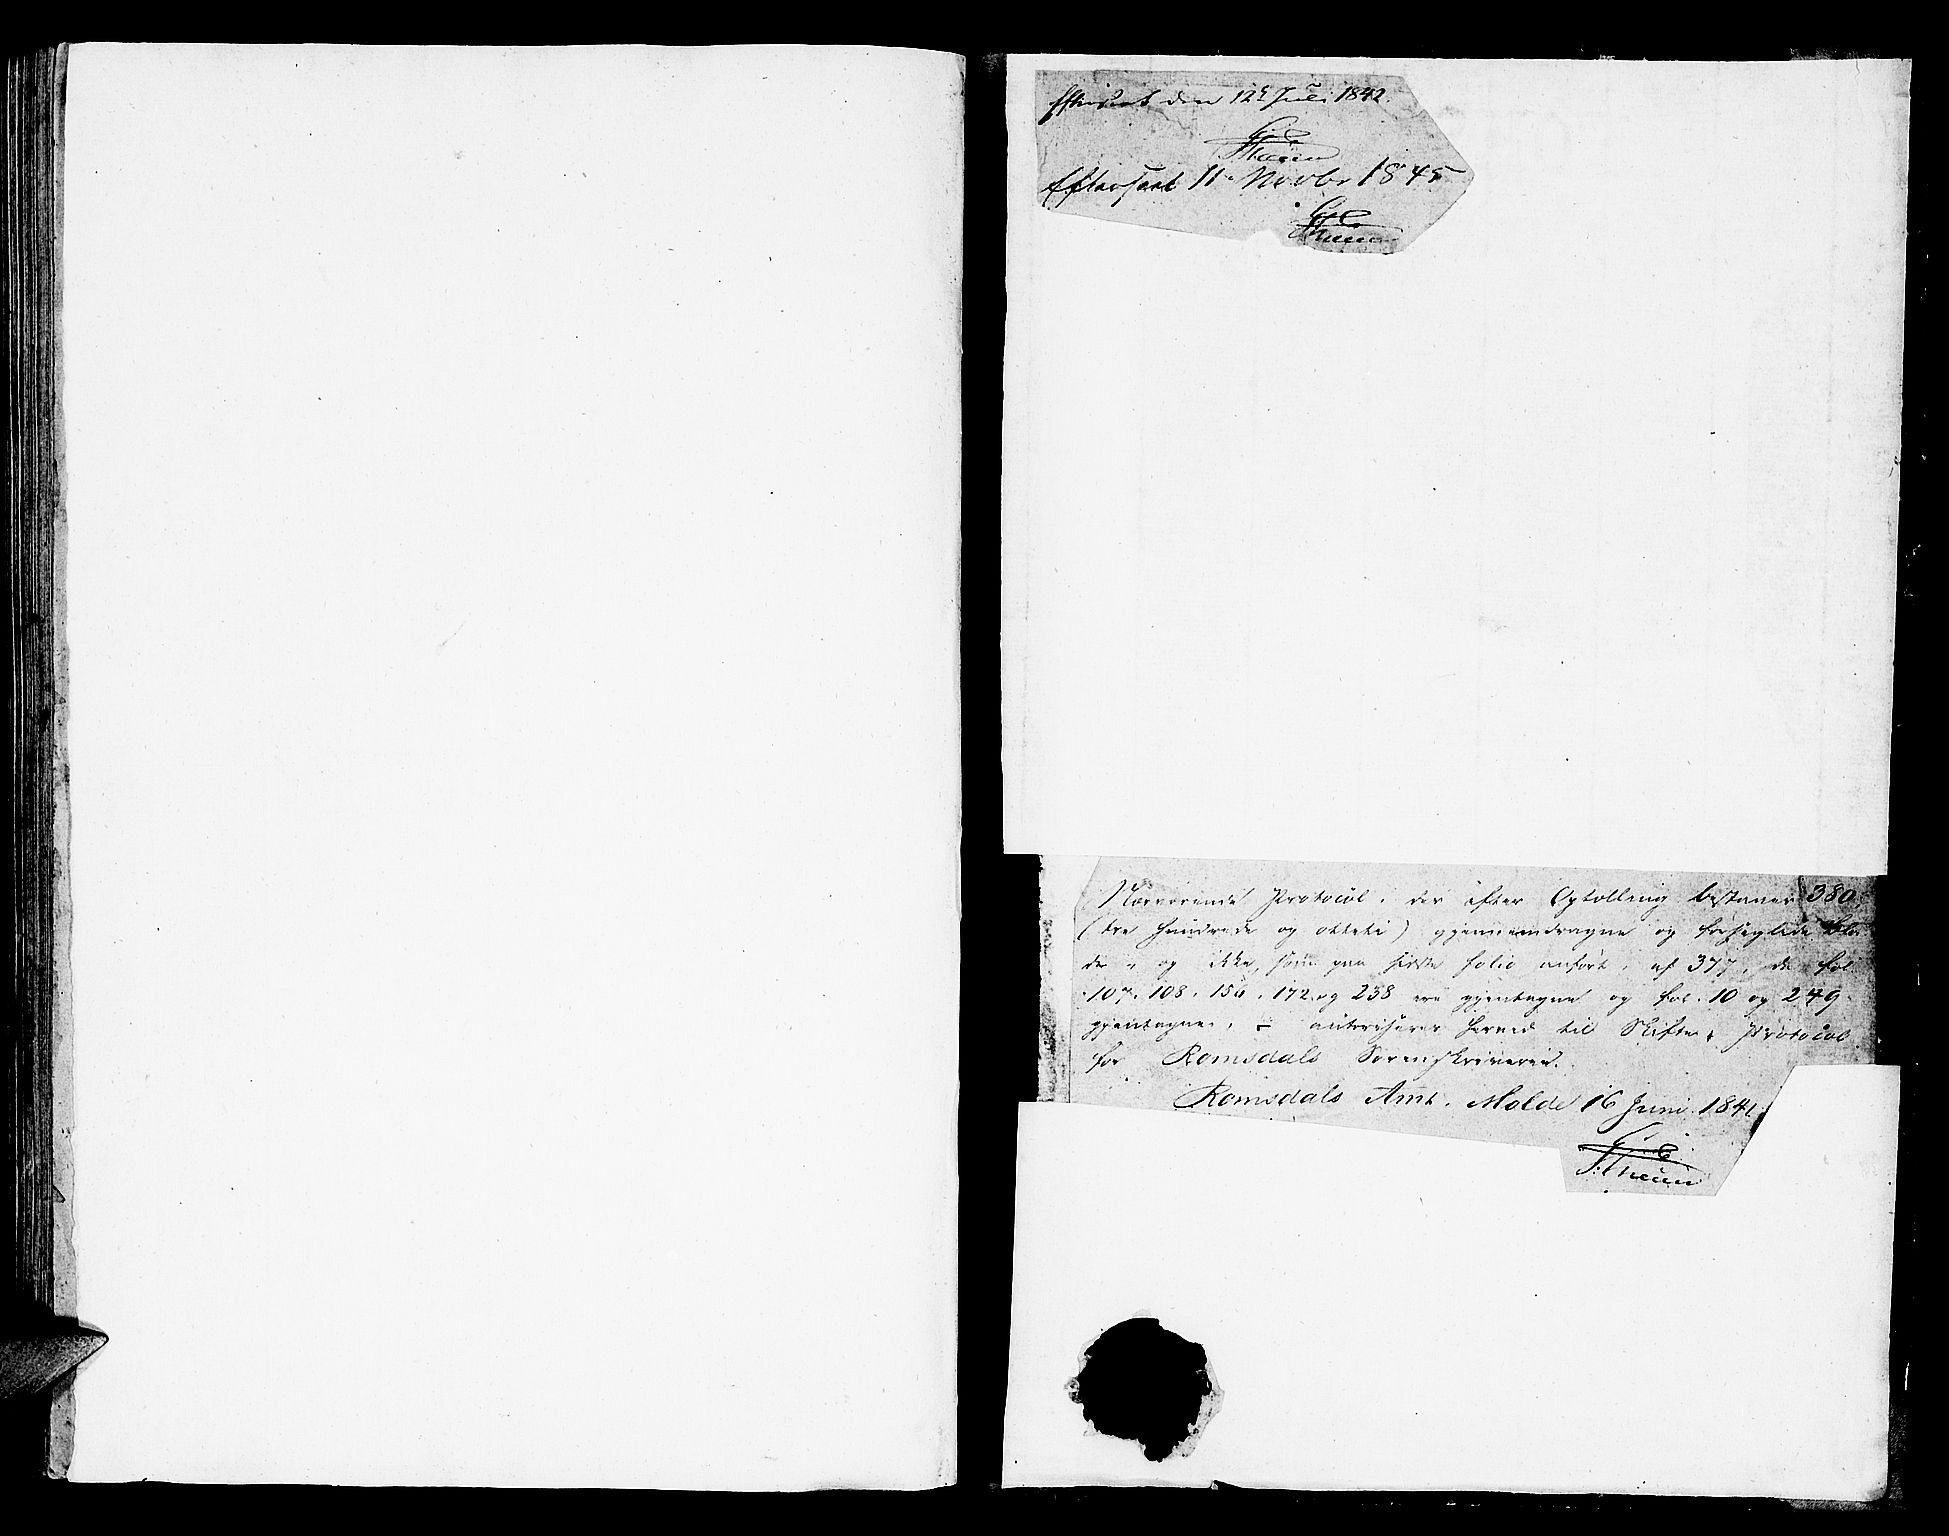 Efterseet den 12te Juli 1842.
Thesen
Efterseet 11 Novbr 1845
Thesen
Nærværende Protocol, der efter Optælling bestaaer 380
(tre hundrede og otteti) gjennemdragne og forseglede Bla-
de, og ikke, som paa sidste folio anført, af 377, da fol
107, 108, 156, 172 og 238 ere gjentagne og fol. 10 og 249
gjentagne, autoriseres herved til Skifte Protocol
for Romsdals Sorenskriverie.
Romsdals Amt, Molde 16 Juni 1841